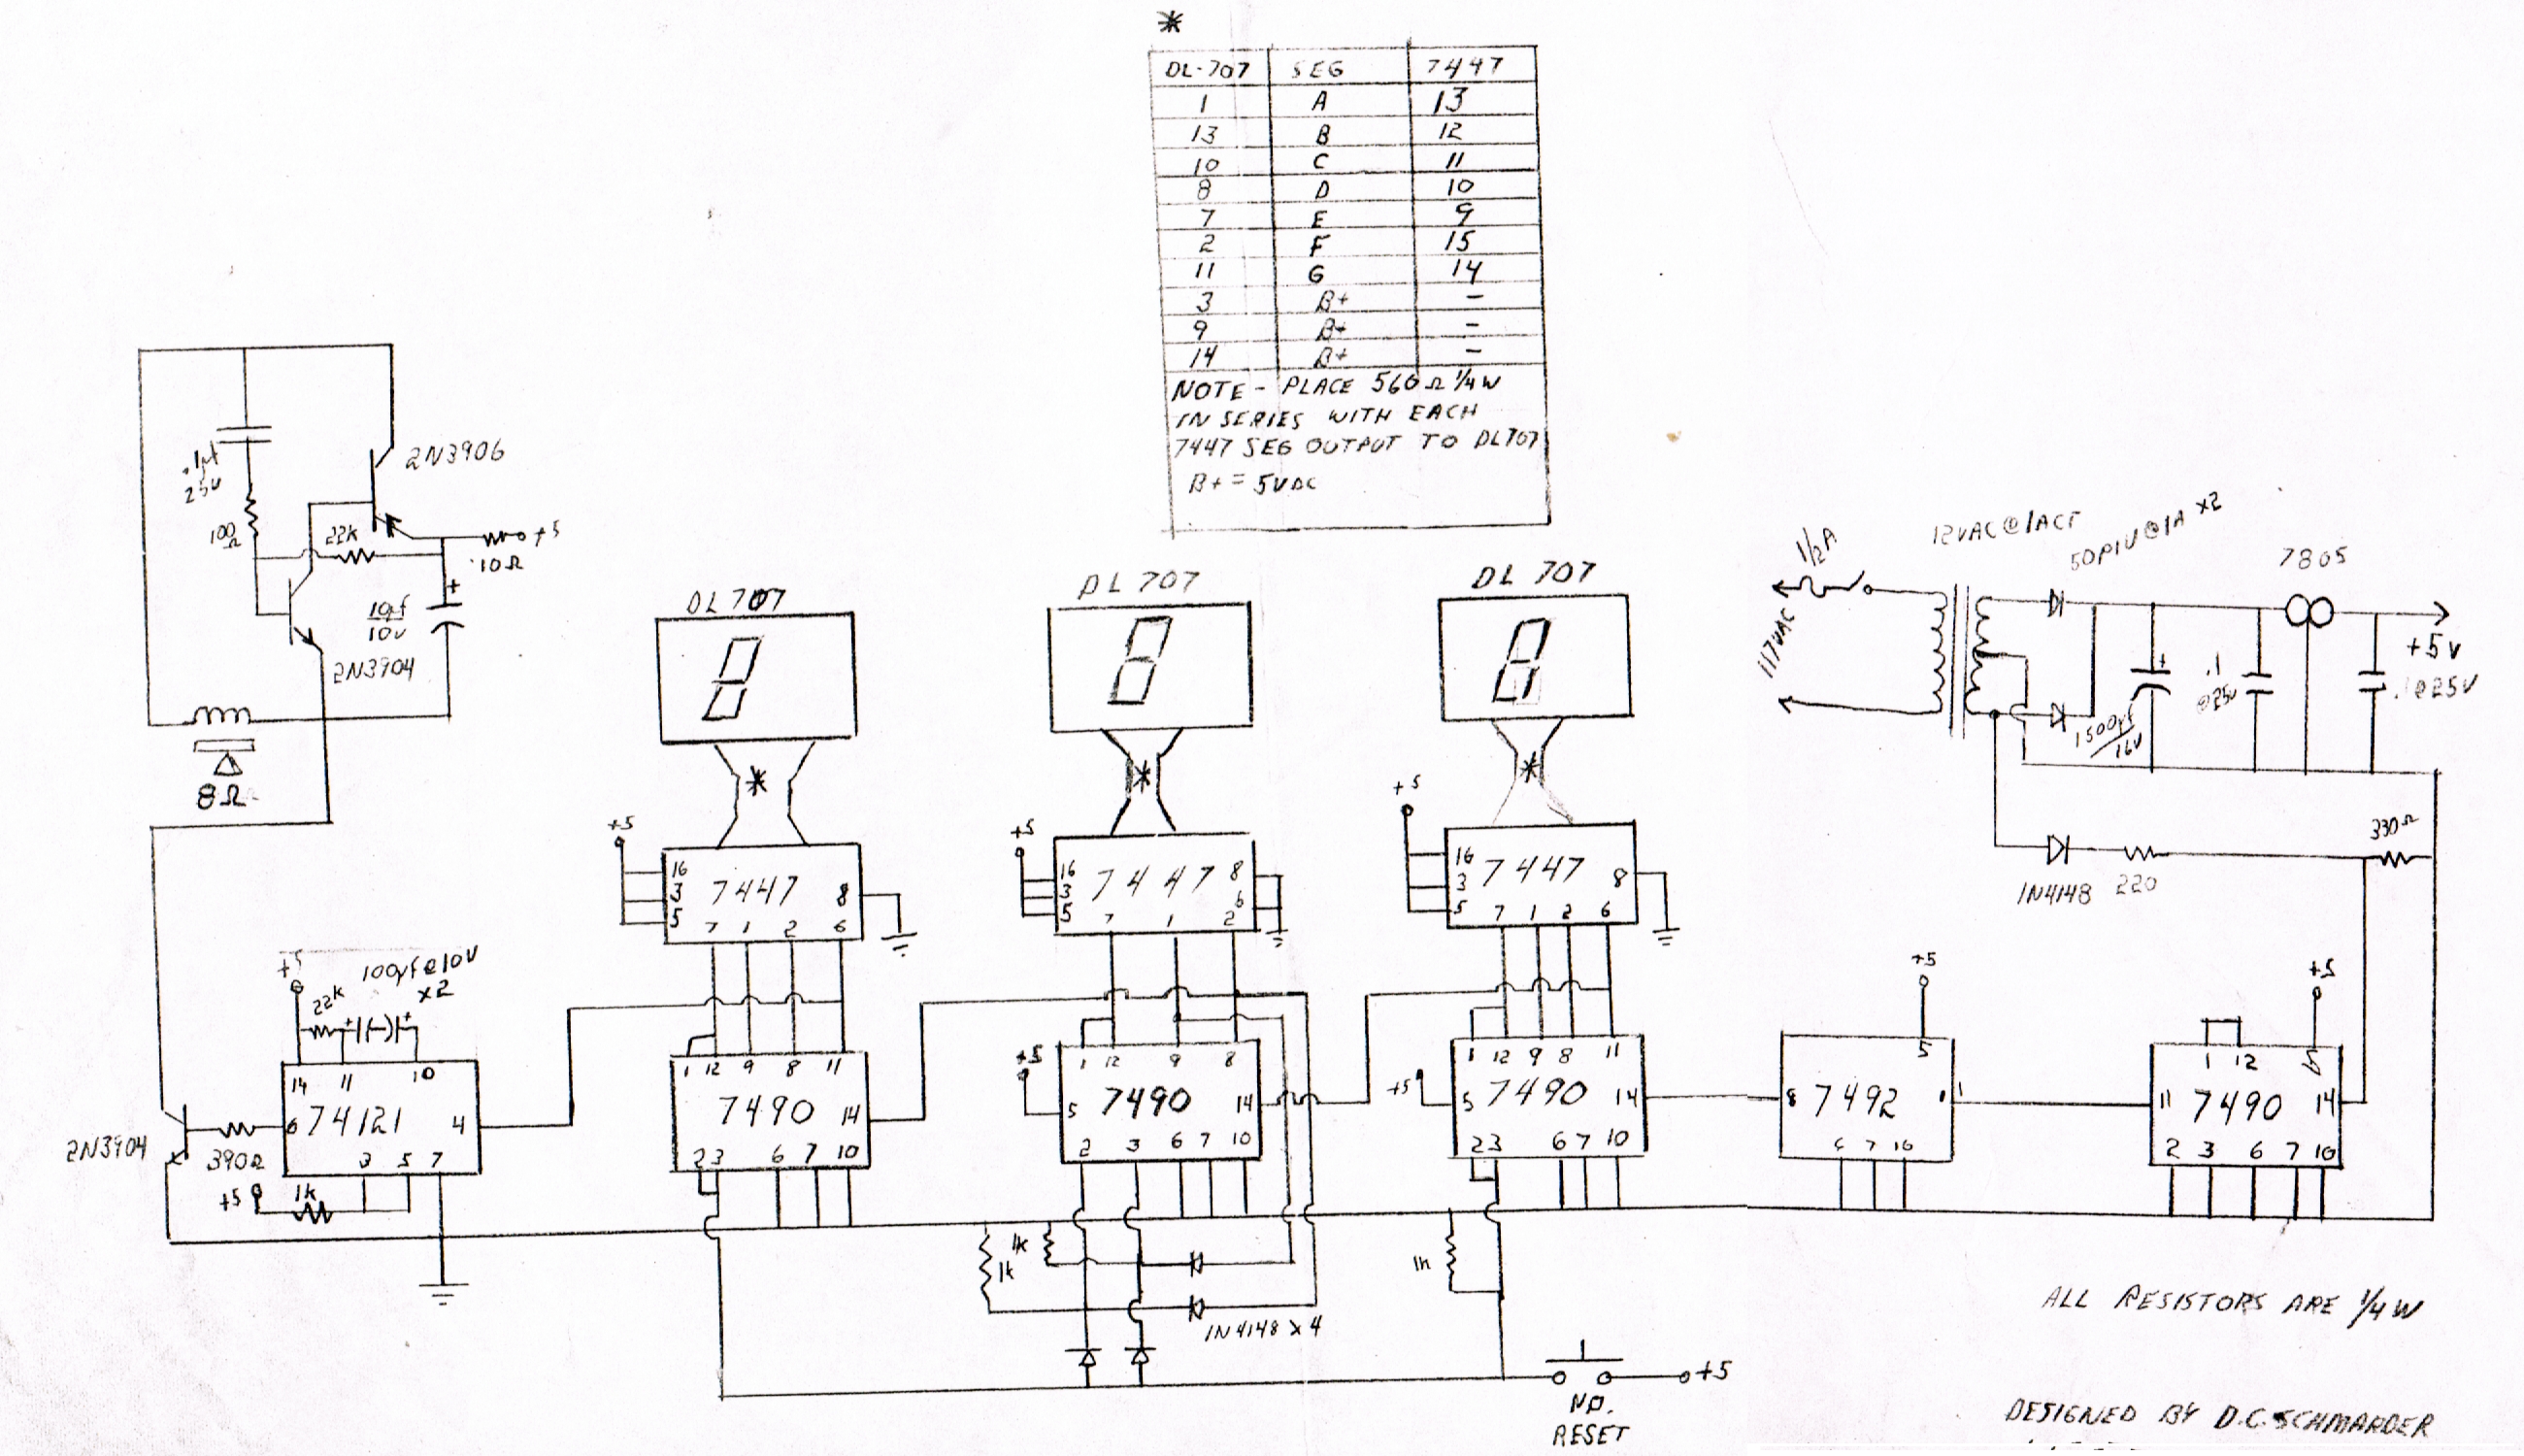 *
DL-707 SEG 7447
1 A 13
13 B 12
10 C 11
8 D 10
7 E 9
2 F 15
11 G 14
3 B+ -
9 B+ -
14 B+ -
NOTE - PLACE 560Ω 1/4W
IN SERIES WITH EACH
7447 SEG OUTPUT TO DL707
B+ = 5VDC
2N3906
.1µf
25V
100
Ω
22K
+5
10Ω
+
10µf
10V
2N3904
8Ω
DL 707
DL 707
DL 707
*
*
*
1/2A
117VAC
12VAC@1ACT
50PIV@1A x2
7805
+
1500µf
/16V
.1
@25V
+5V
.1@25V
330Ω
1N4148
220
+5
16
3
5
7447
8
7 1 2 6
+5
16
3
5
7447
8
6
7 1 2
+5
16
3
5
7447
8
7 1 2 6
+5
22K
100µf@10V
x2
+ +
14 11 10
6
74121
4
3 5 7
2N3904
390Ω
+5
1K
1 12 9 8 11
7490
14
2 3 6 7 10
+5
1 12 9 8
5
7490
14
2 3 6 7 10
+5
1 12 9 8 11
5
7490
14
2 3 6 7 10
+5
5
8
7492
1
6 7 10
+5
1 12 5
11
7490
14
2 3 6 7 10
1K
1K
1N4148 x 4
1K
+5
N.O.
RESET
ALL RESISTORS ARE 1/4W
DESIGNED BY D.C. SCHMARDER